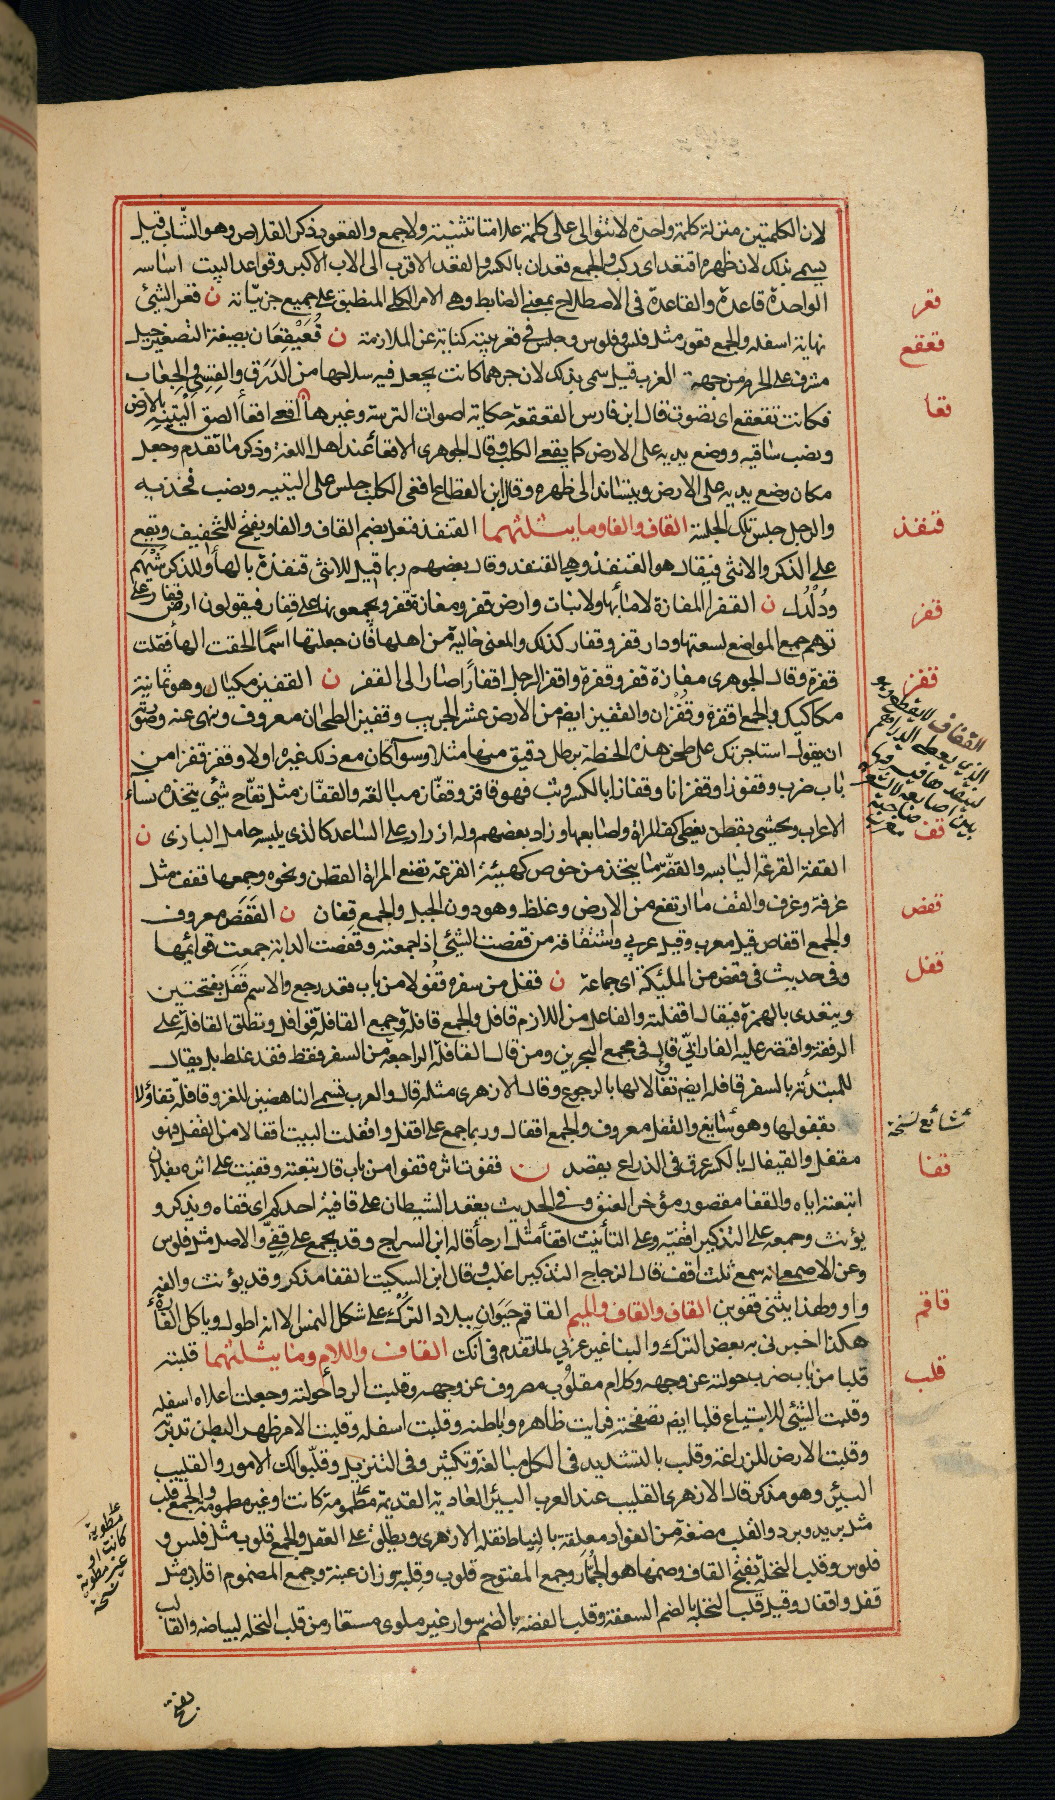 لان الكلمتين منزلة كلمة واحدة لا تتوالى على كلمة علامتا تثنية ولا جمع والقعود ذكر القلاص وهو الشاب قيل
يسمى بذلك لان ظهره اقتعد اى ركب والجمع قعدان بالكسر والقعد الاقرب الى الاب الاكبر وقواعد البيت اساسه
الواحدة قاعدة والقاعدة فى الاصطلاح بمعنى الضابط وهى الامر الكلى المنطبق على جميع جزئياته ن قعر الشئ
قعر
نهاية اسفله والجمع قعور مثل فلس وفلوس وجلس فى قعر بيته كناية عن الملازمة ن قُعَيْقِعَان بصيغة التصغير جبل
قعقع
مشرف على الحرم من جهة الغرب قيل سمى بذلك لان جرهما كانت يجعل فيه سلاحها من الدَرَق والقِسِى والجِعَاب
فكانت تقعقع اى تصوت قال ابن فارس القعقعة حكاية اصوات الترسة وغيرها اقعى اقعاأ الصق اليتيه بالارض
قعا
ونصب ساقيه ووضع يديه على الارض كما يقعى الكلب وقال الجوهرى الاقعاأ عند اهل اللغة وذكر ما تقدم وجعل
مكان وضع يديه على الارض ويتساند الى ظهره وقال ابن القطاع اقعى الكلب جلس على اليتيه ونصب فخذيه
والرجل جلس تلك الجلسة القاف والفا وما يثلثهما القنفذ فنعل بضم القاف والفا ويفتح للتخفيف ويقع
قنفذ
على الذكر والانثى فيقال هو القنفذ وهى القنفذ وقال بعضهم ربما قيل للانثى قنفذة بالهاأ وللذكر شَيْهَم
ودُلْدُل ن القفر المفازة لا ماأ بها ولا نبات وارض قفر ومفازة قفر ويجمعونها على قِفار فيقولون ارض قفار على
قفر
توهم جمع المواضع لسعتها ودار قفر وقفار كذلك والمعنى خالية من اهلها فان جعلتها اسمًا الحقت الهاأ فقلت
قفرة وقال الجوهرى مفازة قفر وقفرة واقفر الرجل اقفارًا صار الى القفر ن القفيز مكيال وهو ثمانية
قفز
مكاكيك والجمع اقفزة وقُفْزان والقفيز ايضم من الارض عشر الجريب وقفيز الطحان معروف ونهى عنه وصورته
ان يقول استاجرتك على طحن هذه الحنطة برطل دقيق منها مثلا وسوآ كان مع ذلك غيره اولا وقفز قفزا من
باب ضرب وقفوزا وقفزانا وقفازا بالكسر وثب فهو قافز وقفّاز مبالغة والقفّاز مثل تفّاح شئ يتخذه نسآء
الاعراب ويحشى بقطن يغطى كف المراة واصابعها وزاد بعضهم وله ازرار على الساعد كالذى يلبسه حامل البازى ن
القفة القرعة اليابسه والقفّه ما يتخذ من خوص كهيئة القرعة تضع المراة القطن ونحوه وجمعها قفف مثل
قف
غرفة وغرف والقف ما ارتفع من الارض وغلظ وهو دون الجبل والجمع قفان ن القَفَص معروف
قفص
والجمع اقفاص قيل معرب وقيل عربى واشتقاقه من قفصت الشئ اذا جمعته وقفصت الدابة جمعت قوايمها
وفى حديث فى قفص من الملئكة اى جماعة ن قفل من سفره قفولا من باب قعد رجع والاسم قَفَل بفتحتين
قفل
ويتعدى بالهمزة فيقال اقفلته والفاعل من اللازم قافل والجمع قافلة وجمع القافلة قوافل وتطلق القافلة على
الرفقة واقتصر عليه الفارابى قال فى مجمع البحرين ومن قال القافلة الراجعة من السفر فقط فقد غلط بل يقال
للمبتدئة بالسفر قافله ايضم تفالا لها بالرجوع وقال الازهرى مثله قال والعرب تسمى الناهضين للغزو قافلة تفاؤلا
بقفولها وهو شايع والقفل معروف والجمع اقفال وربما جمع على اقفل واقفلت البيت اقفالا من القفل فهو
شائع نسخة
مقفل والقيفال بالكسر عرق فى الذراع يفصد ن قفوت اثره قفوا من باب قال تبعته وقفيت على اثره بفلان
قفا
اتبعته اياه والقفا مقصور مؤخر العنق وفى الحديث يعقد الشيطان على قافية احدكم اى قفاه ويذكر و
يؤنث وجمعه على التذكير اقفيه وعلى التأنيث اقفاأ مثل ارجاأ قاله ابن السراج وقد يجمع على قِفِىّ والاصل مثل فلوس
وعن الاصمعى انه سمع ثلث اقف قال الزجاج التذكير اغلب وقال ابن السكيت القفا مذكر وقد يؤنث والفه
واو ولهذا يثنى قفوين القاف والقاف والميم القاقم حَيَوان ببلاد التُرْك على شكل النمس الا انه اطول وياكل الفأرة
قاقم
هكذا اخبرنى به بعض الترك والبنا غير عربى لما تقدم فى انك القاف واللام وما يثلثهما قلبته
قلبا من باب ضرب حولته عن وجهه وكلام مقلُوب مصروف عن وجهه وقلبت الردأ حولته وجعلت اعلاه اسفله
قلب
وقلبت الشئ للابتياع قلبا ايضم تصفحته فرايت ظاهره وباطنه وقلبت الامر ظهر البطن تدبرته
وقلبت الارض للزراعة وقلب بالتشديد فى الكل مبالغة وتكثير وفى التنزيل وقلّبوا لك الامور والقليب
البئر وهو مذكر قال الازهرى القليب عند العرب البئر العادية القديمة مطمومة كانت او غير مطمومة والجمع قلب
مطوية كانت او غير مطوية نسخة
مثل بريد وبرد والقلب مضغة من الفؤاد معلقة بالنياط نقله الازهرى ويطلق على العقل والجمع قلوب مثل فلس و
فلوس وقلب النخلة بفتح القاف وضمها هو الجُمّار وجمع المفتوح قلوب وقلبة وزان عنبة وجمع المضموم اقلاب مثل
قفل واقفال وقيل قلب النخلة بالضم السعفة وقلب الفضه بالضم سوار غير ملوى مستعار من قلب النخله لبياضه والقالب
بفتح